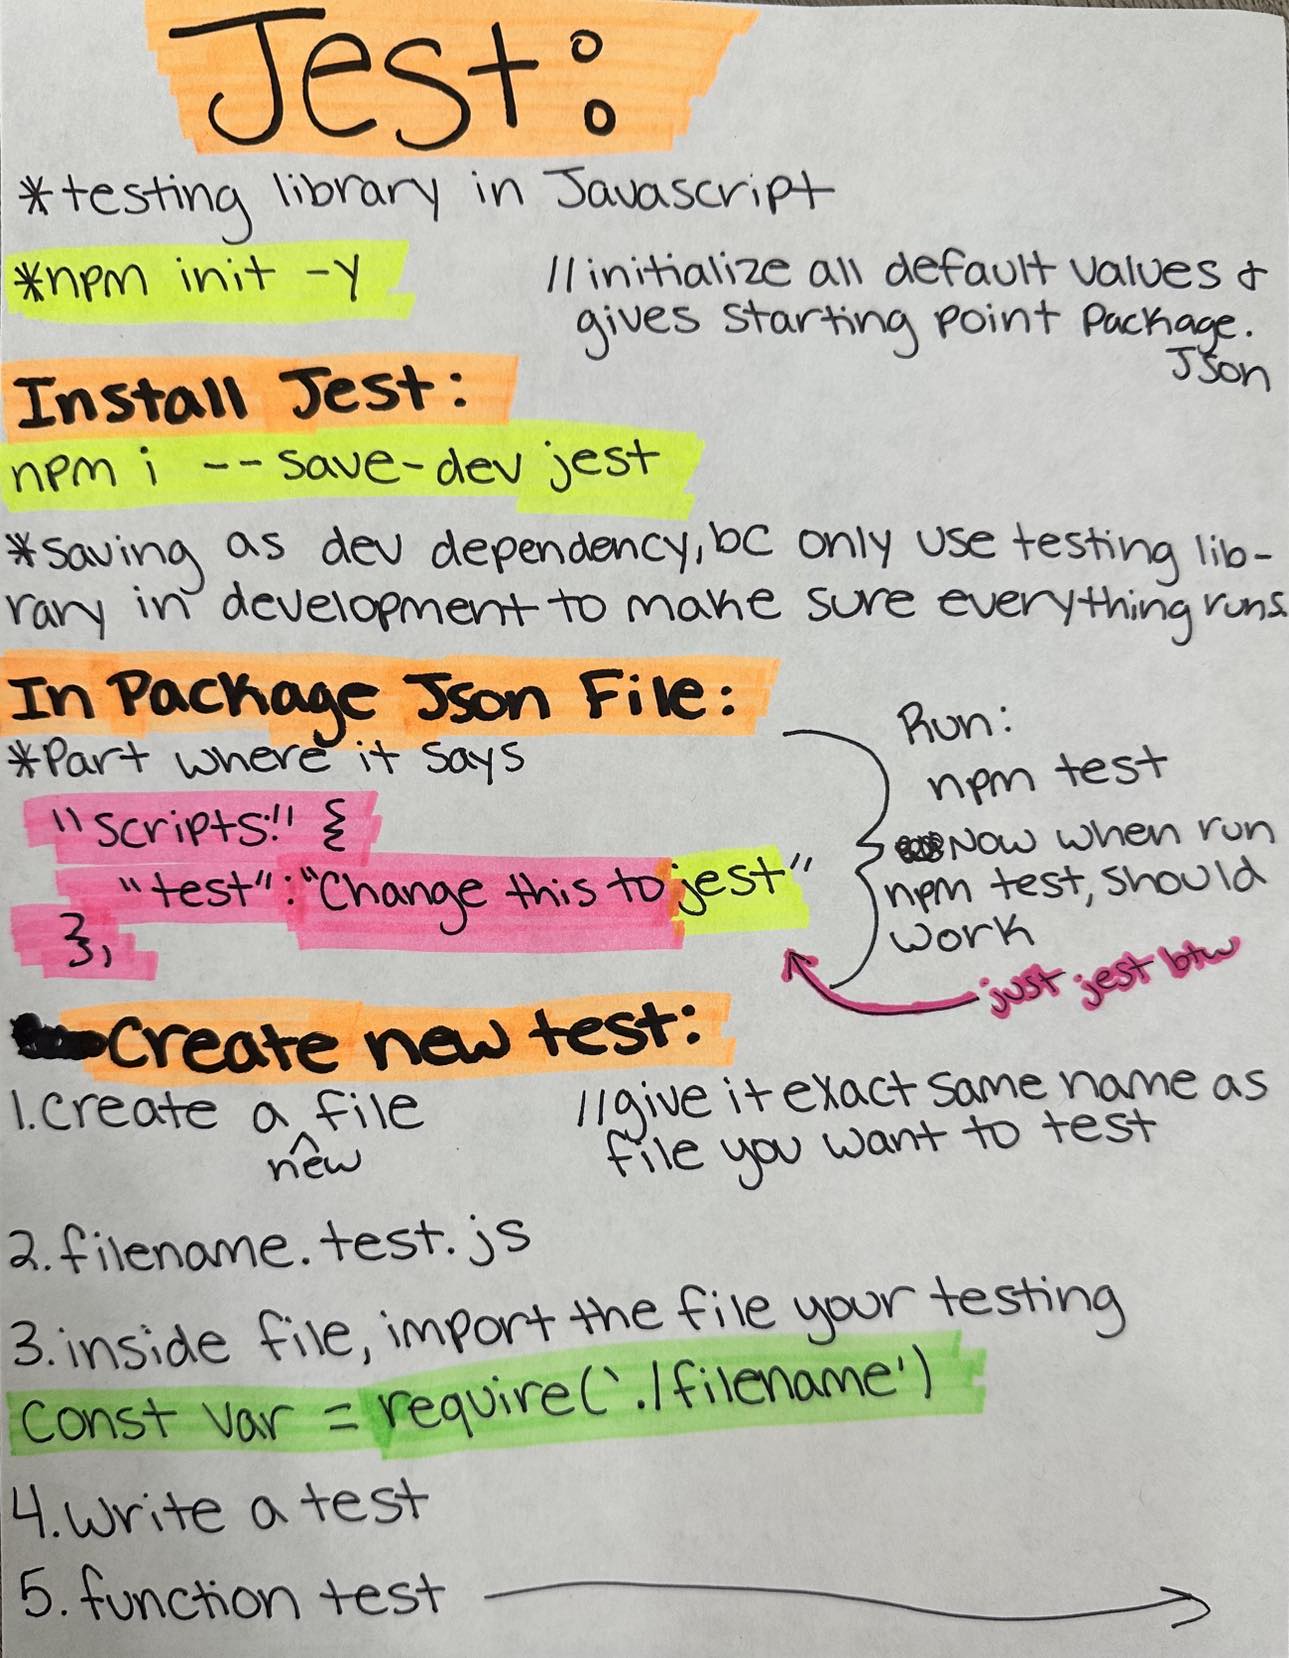 Jest:
*testing library in Javascript
*npm init -y
//initialize all default values &
gives starting point Package.
Json
Install Jest:
npm i --save-dev jest
*saving as dev dependency, bc only use testing lib-
rary in development to make sure everything runs.
In Package Json File:
*Part where it says
"scripts:" {
"test": "Change this to jest"
},
Run:
npm test
Now when run
npm test, should
work
just jest btw
Create new test:
1. Create a new file
//give it exact same name as
file you want to test
2. filename.test.js
3. inside file, import the file your testing
const var = require('./filename')
4. write a test
5. function test